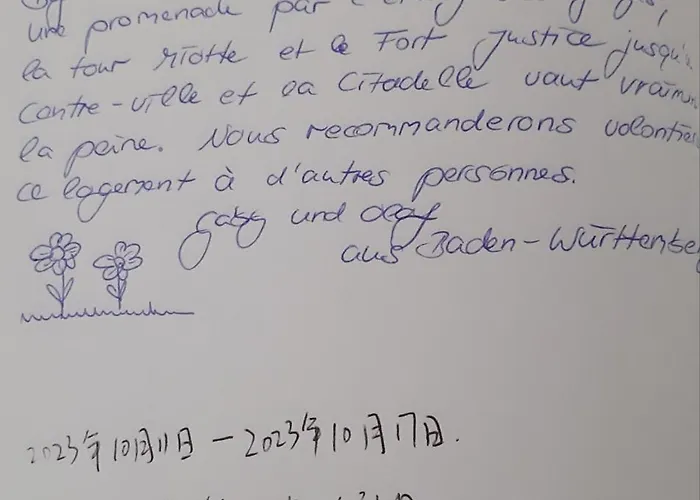 une promenade par
la tour Riotte et le Fort Justice jusqu'à
Contre-ville et la Citadelle vaut vraim
la peine. Nous recommanderons volontie
ce logement à d'autres personnes.
Gaby und Olaf
aus Baden-Württembe
2023年10月11日 - 2023年10月17日.